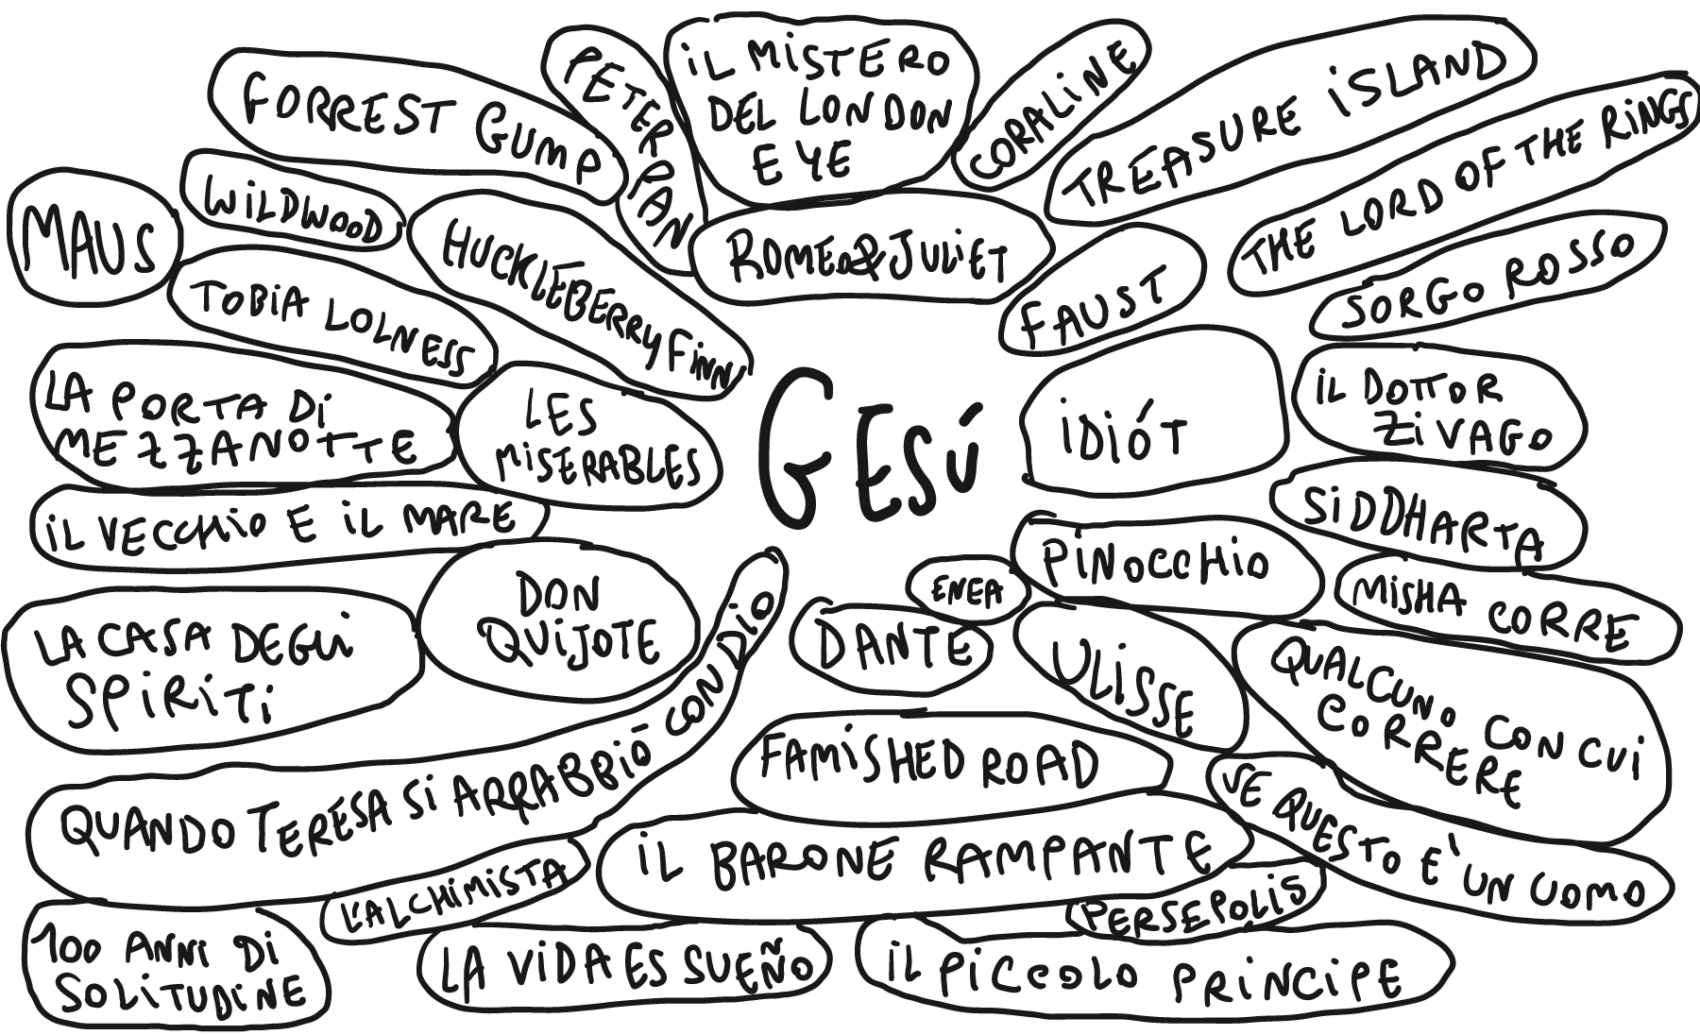 FORREST GUMP
PETER PAN
iL MiSTERO
DEL LONDON
EYE
CORALiNE
TREASURE iSLAND
THE LORD OF THE RiNGS
MAUS
WiLDWOOD
HUCKLEBERRY FiNN
ROMEO & JULiET
FAUST
SORGO ROSSO
TOBiA LOLNESS
LA PORTA Di
MEZZANOTTE
LES
MiSERABLES
GESÚ
iDiÓT
iL DOTTOR
ZiVAGO
iL VECCHiO E iL MARE
SiDDHARTA
DON
QUiJOTE
ENEA
PiNOCCHiO
MiSHA CORRE
LA CASA DEGLi
SPiRiTi
DANTE
ULiSSE
QUALCUNO CON CUi
CORRERE
QUANDO TERESA Si ARRABBiÒ CON DiO
FAMiSHED ROAD
SE QUESTO E' UN UOMO
iL BARONE RAMPANTE
L'ALCHiMiSTA
PERSEPOLiS
100 ANNi Di
SOLiTUDiNE
LA ViDA ES SUEÑO
iL PiCCOLO PRiNCiPE